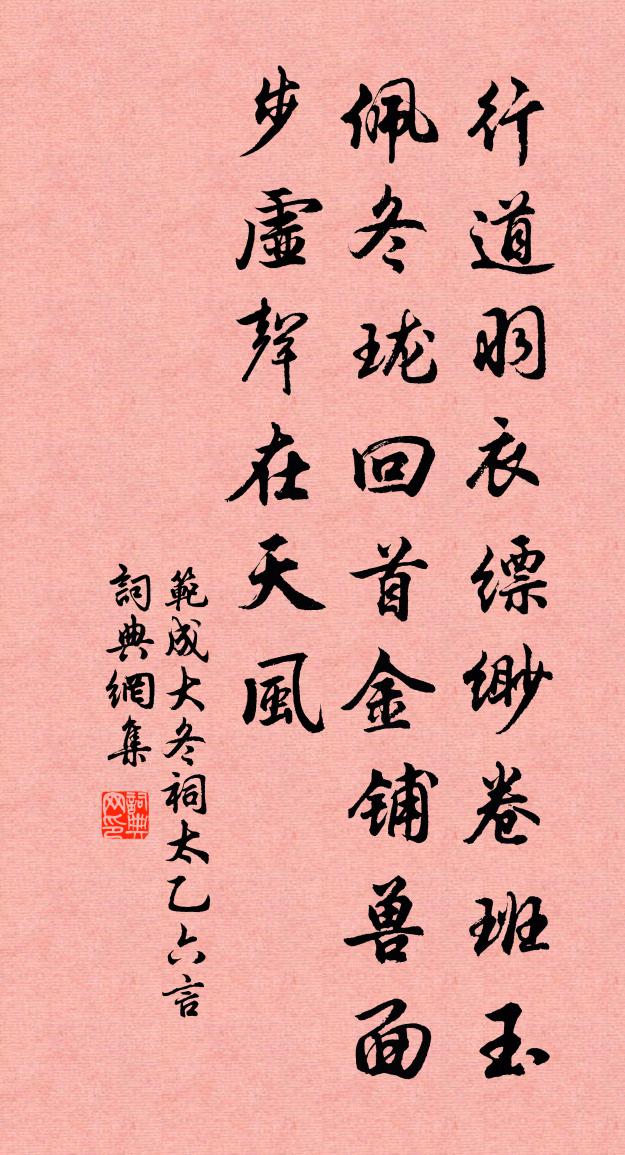 行道羽衣缥缈卷班玉
佩冬珑回首金铺兽面
步虚聲在天風
範成大冬祠太乙六言
詞典網集
詞典网印